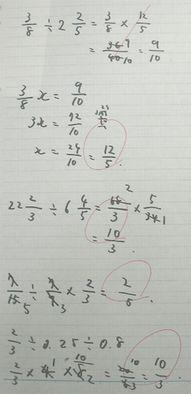 3/8 ÷ 2 2/5 = 3/8 × 12/5
= 36 9/40 10 = 9/10
3/8 x = 9/10
3x = 72/10
x = 24/10 = 12/5
22 2/3 ÷ 6 4/5 = 68 2/3 × 5/34 1
= 10/3
÷ × 2/3 = 2
2/3 ÷ 0.25 ÷ 0.8
2/3 × 4 1 × 10/8 2 = = 10/3